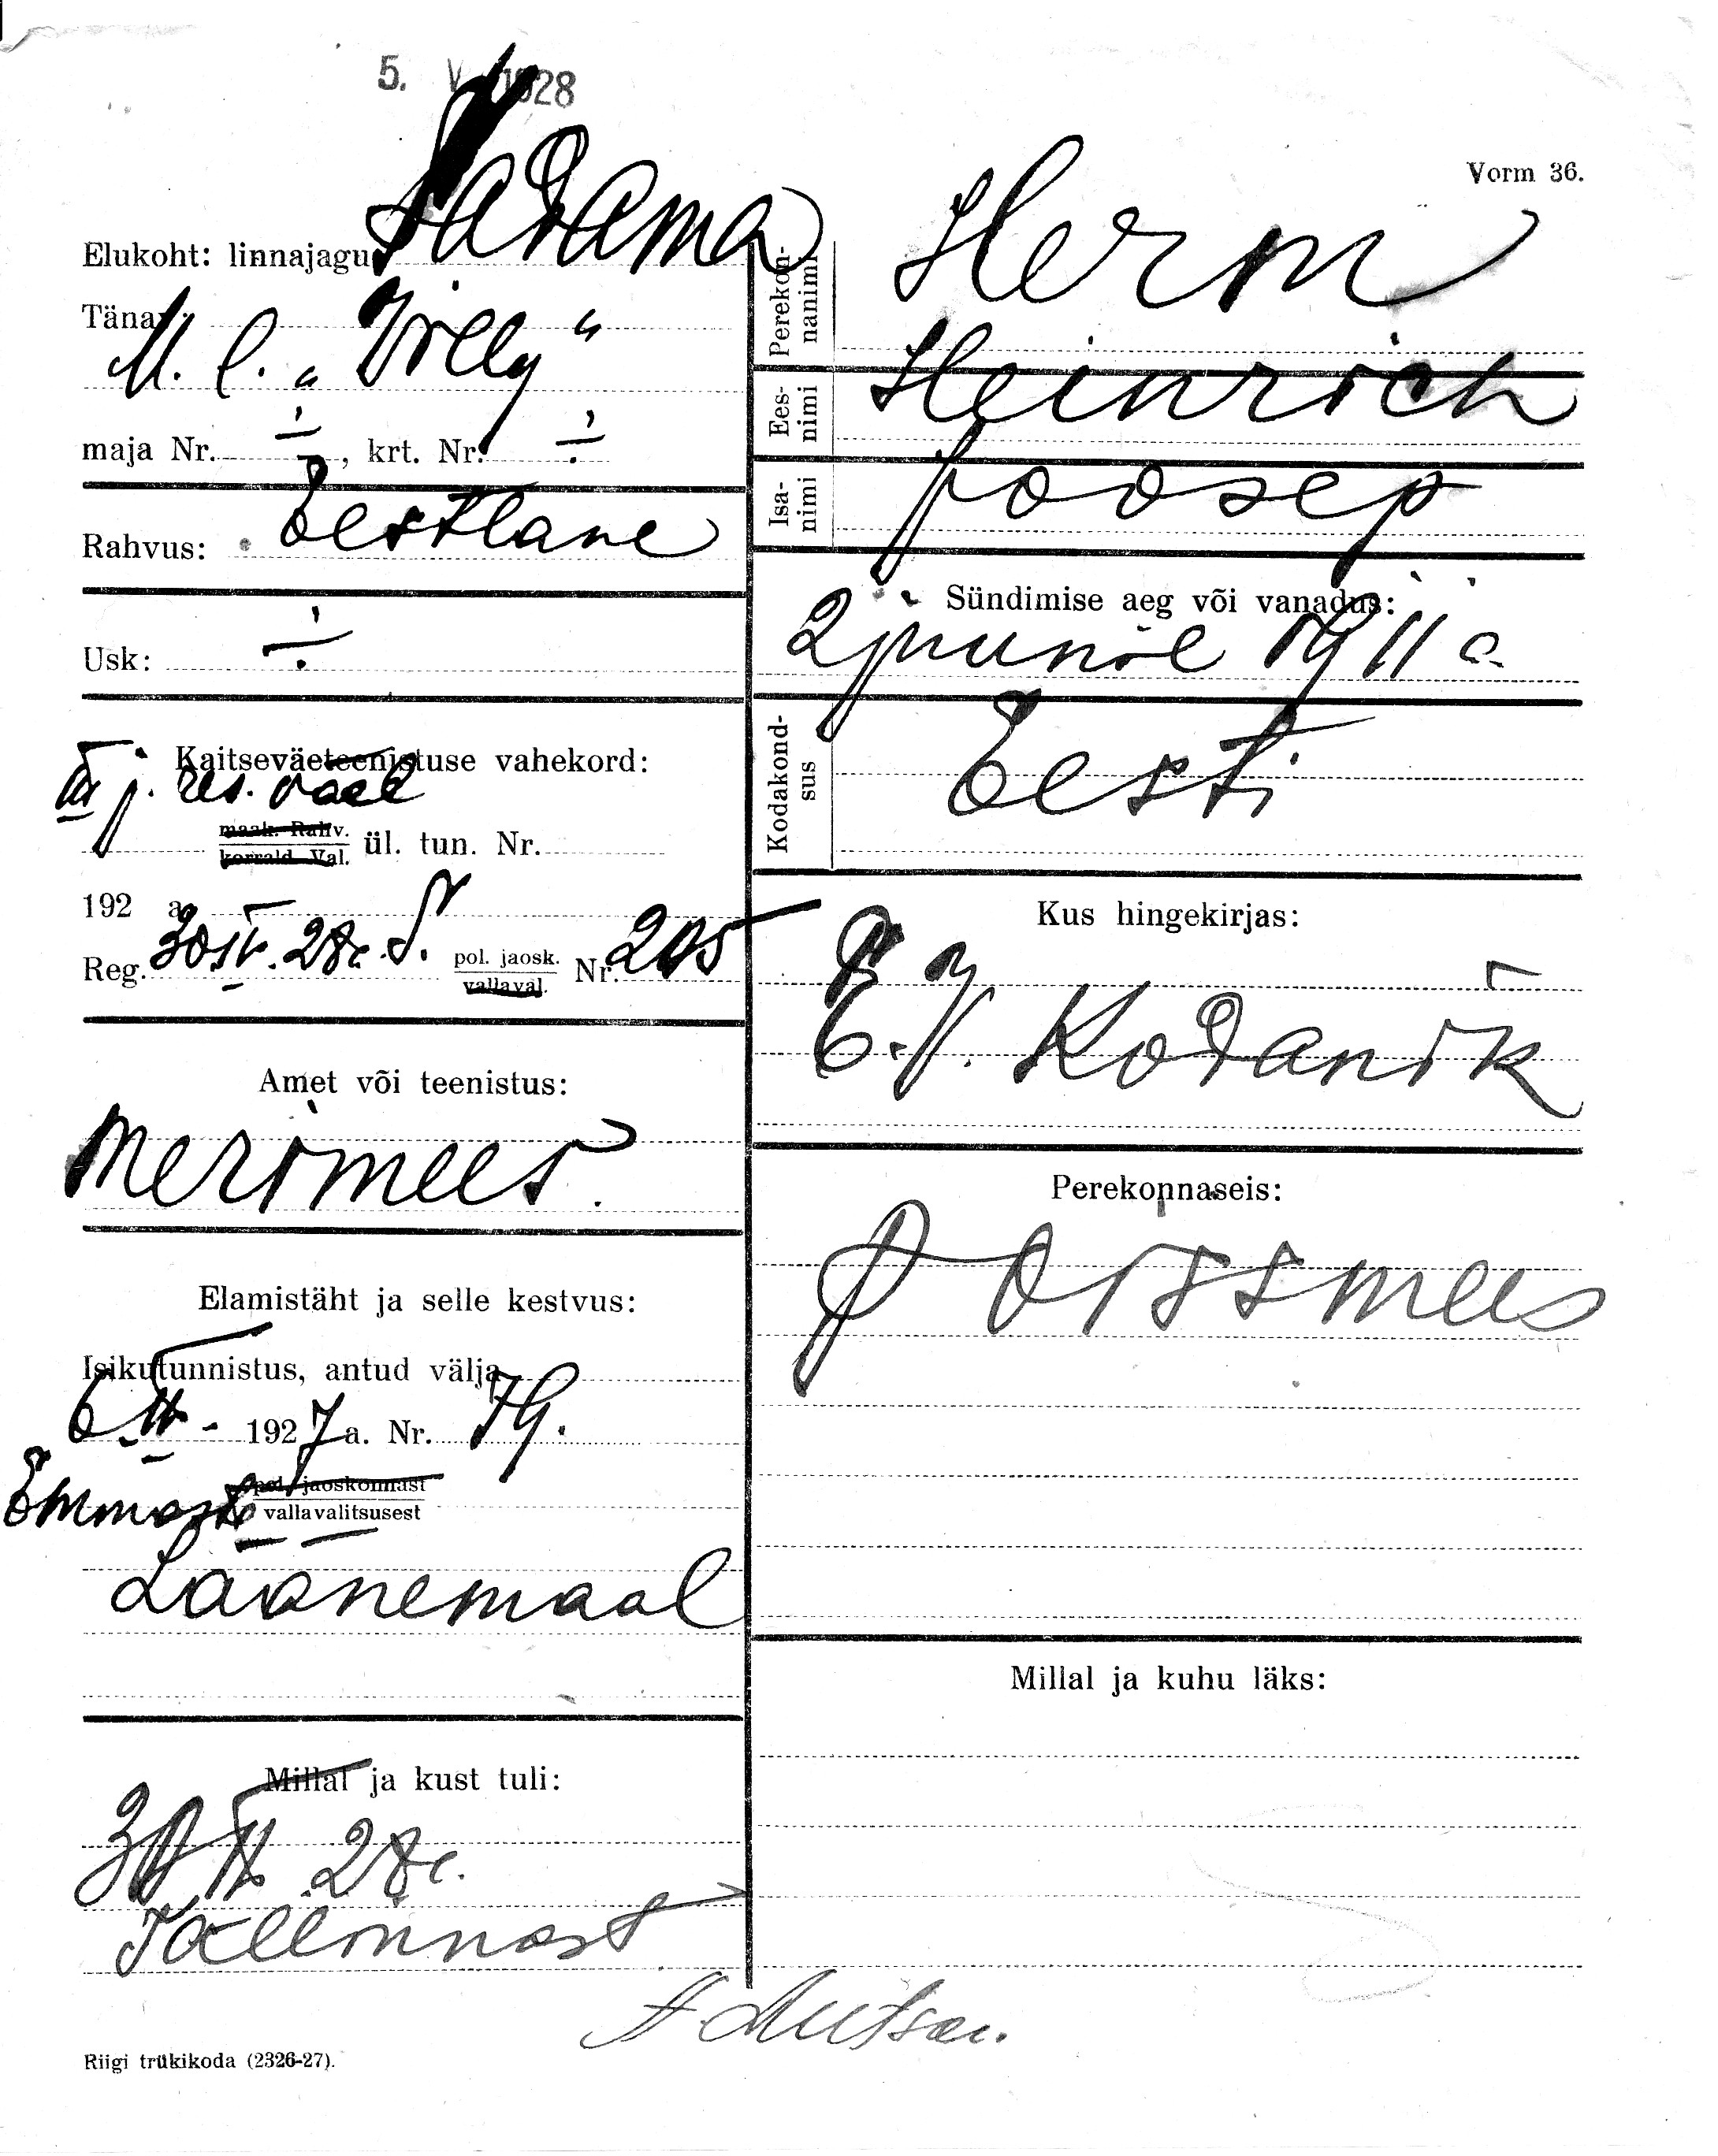 5. V 1928
Vorm 36.
Elukoht: linnajagu Sadama
Tänav:
M. l. „Villy“
maja Nr. ÷, krt. Nr. ÷
Rahvus: Eestlane
Usk: ÷
Kaitseväeteenistuse vahekord:
j. res. väel
maak. Rahv.
korrald. Val. ül. tun. Nr.
192 a.
Reg. 30 IV. 28a. S. pol. jaosk. Nr. 205
vallaval.
Amet või teenistus:
Merimees.
Elamistäht ja selle kestvus:
Isikutunnistus, antud välja
6 II - 1927 a. Nr. 79.
Emmaste pol. jaoskonnast
vallavalitsusest
Läänemaal
Millal ja kust tuli:
30 IV 28a.
Tallinnast
Perekonnanimi Herm
Eesnimi Heinrich
Isanimi Joosep
Sündimise aeg või vanadus:
2 juunil 1911 a.
Kodakondsus Eesti
Kus hingekirjas:
E.V. Kodanik
Perekonnaseis:
Poissmees
Millal ja kuhu läks:
Riigi trükikoda (2326-27).